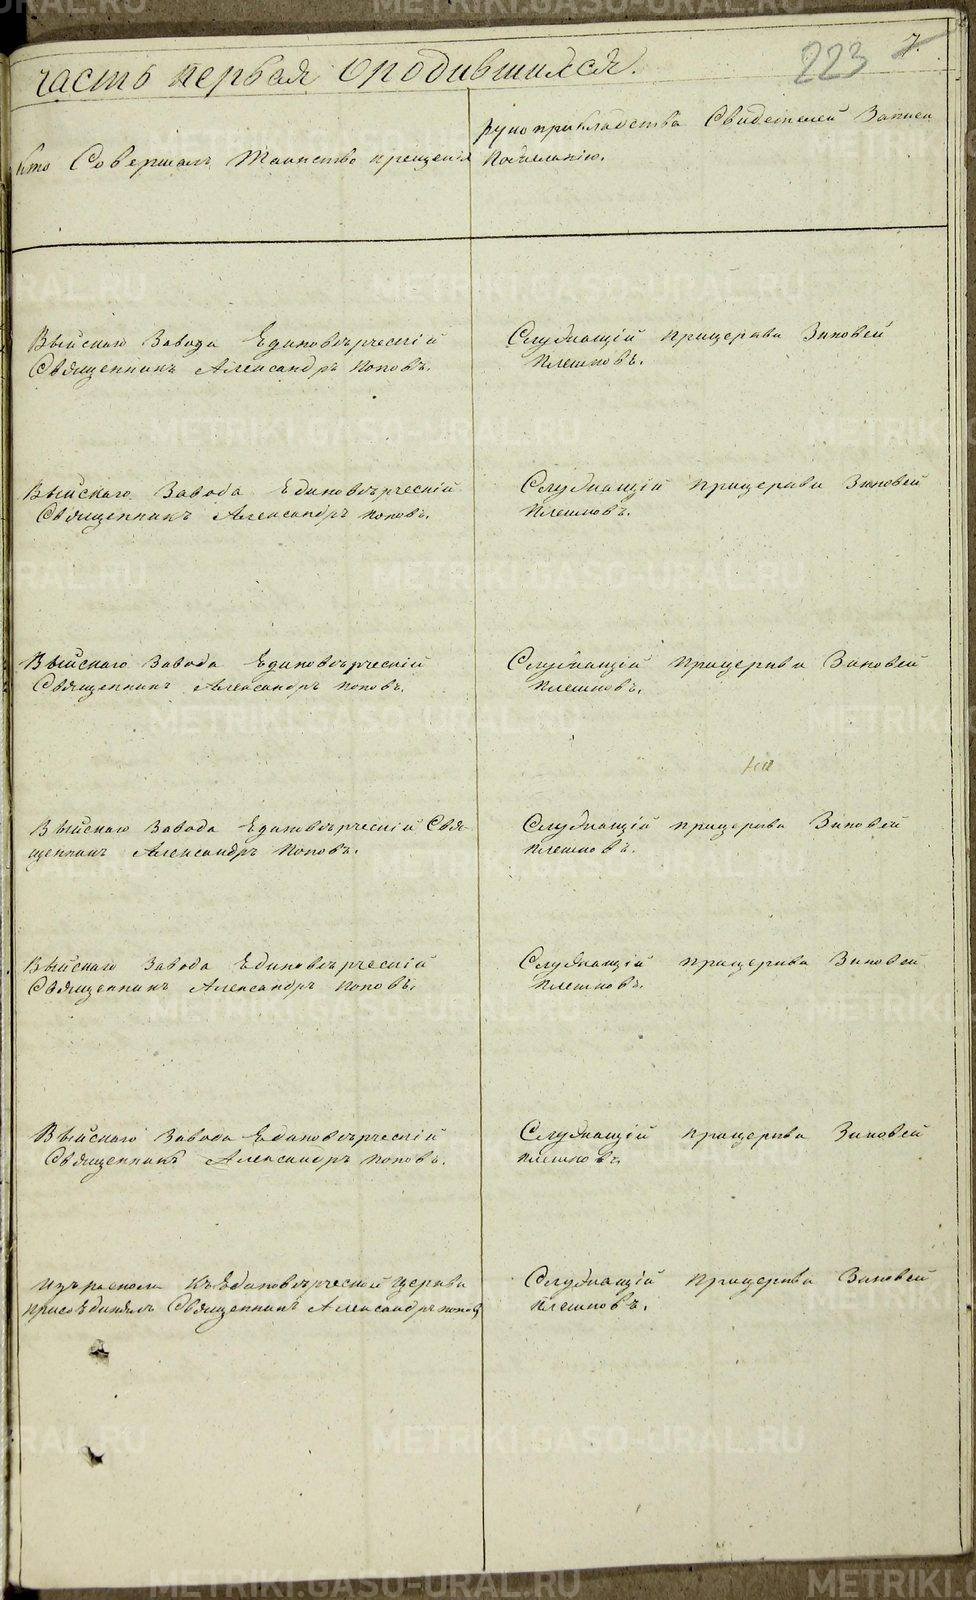 часть первая о родившихся.
223
7.
Кто Совершалъ Таинство крещенія
рукоприкладства Свидетелей Записи
Пожеланію.
Выйскаго Завода Единовѣрческій
Священникъ Александръ Поповъ.
Служащій прицеркви Зиновей
Плешковъ.
Выйскаго Завода Единовѣрческій
Священникъ Александръ поповъ.
Служащій прицеркви Зиновей
Плешковъ.
Выйскаго Завода Единовѣрческій
Священникъ Александръ поповъ.
Служащій прицеркви Зиновей
Плешковъ.
Выйскаго Завода Единовѣрческій Свя-
щенникъ Александръ Поповъ.
Служащій прицеркви Зиновей
Плешковъ.
Выйскаго Завода Единовѣрческій
Священникъ Александръ Поповъ.
Служащій прицеркви Зиновей
Плешковъ.
Выйскаго Завода Единовѣрческій
Священникъ Александръ поповъ.
Служащій прицеркви Зиновей
плешковъ.
Изъ раскола КъЕдиновѣрческой Церкви
присоЕдинялъ Священникъ Александръ поповъ
Служащій прицеркви Зиновей
Плешковъ.
METRIKI.GASO-URAL.RU